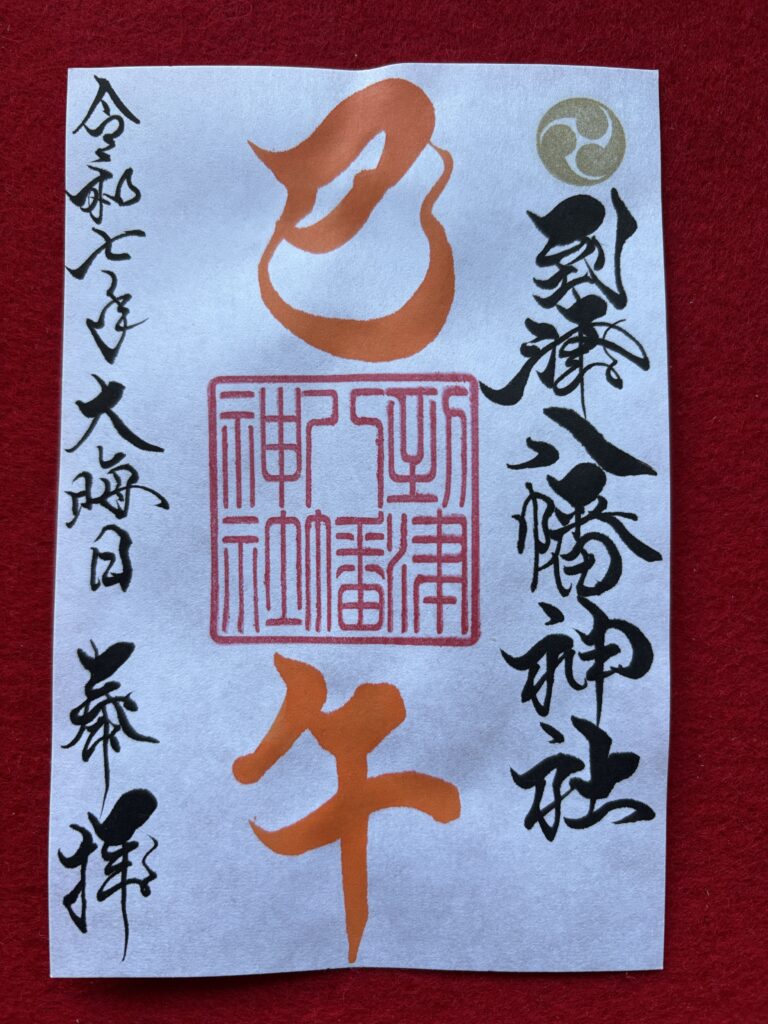 到津八幡神社
巳
到津
八幡
神社
午
令和七年大晦日 奉拝